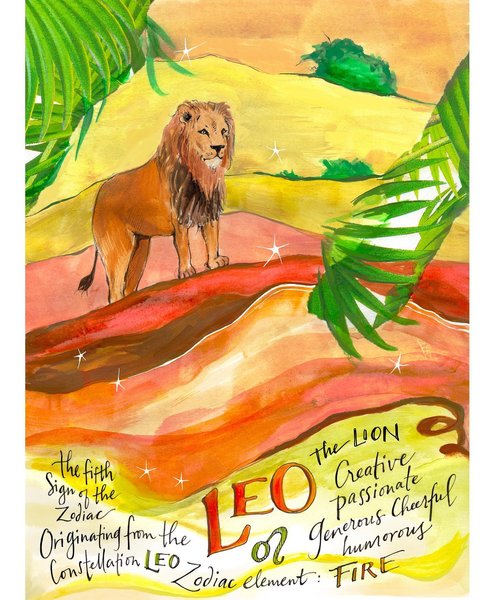 the fifth
Sign of the
Zodiac
Originating from the
Constellation LEO
LEO
♌
The LION
Creative
passionate
generous Cheerful
humorous
Zodiac element: FIRE